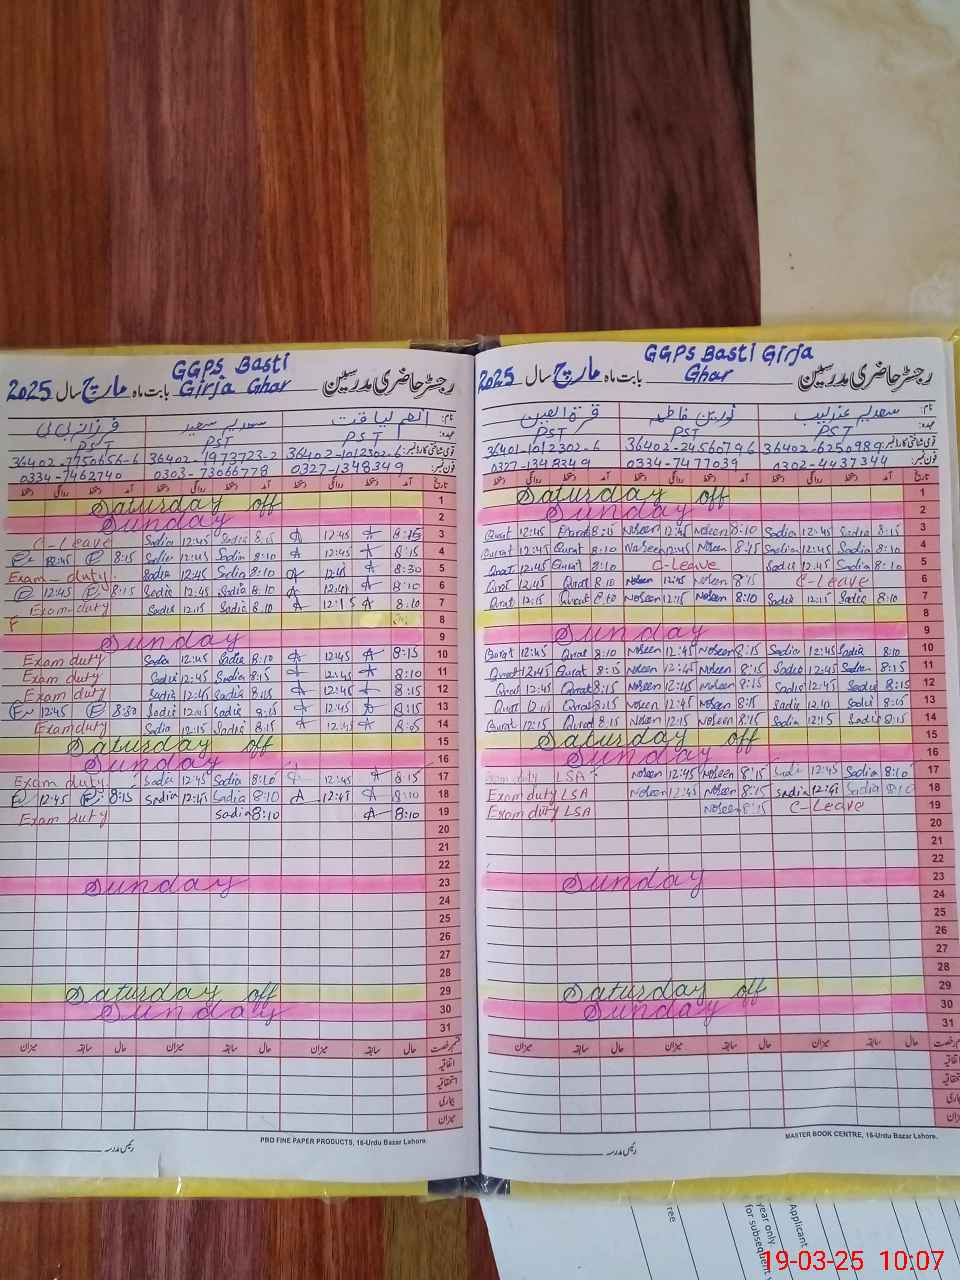 GGPS Basti
رجسٹر حاضری مدرسین بابت ماہ Girja Ghar مارچ سال 2025
نام:
انعم لیاقت سعدیہ سعید فرزانہ بی بی
عہدہ:
PST PST PST
قومی شناختی کارڈ نمبر:
36402-7750656-6 36402-1973723-2 36402-1012302-6
فون نمبر:
0334-7462740 0303-73066778 0327-1348349
تاریخ آمد دستخط روانگی دستخط آمد دستخط روانگی دستخط آمد دستخط روانگی دستخط
Saturday off 1
Sunday 2
C-Leave Sadia 12:45 Sadia 8:15 12:45 8:15 3
12:45 8:15 Sadia 12:45 Sadia 8:10 12:45 8:15 4
Exam-duty Sadia 12:45 Sadia 8:10 12:45 8:30 5
12:45 8:15 Sadia 12:45 Sadia 8:10 12:41 8:10 6
Exam-duty Sadia 12:15 Sadia 8:10 12:15 8:10 7
F 8
Sunday 9
Exam duty Sadia 12:45 Sadia 8:10 12:45 8:15 10
Exam duty Sadia 12:45 Sadia 8:15 12:45 8:10 11
Exam duty Sadia 12:45 Sadia 8:15 12:45 8:15 12
12:45 8:30 Sadia 12:45 Sadia 8:15 12:45 8:15 13
Exam duty Sadia 12:15 Sadia 8:15 12:45 8:05 14
Saturday off 15
Sunday 16
Exam duty Sadia 12:45 Sadia 8:10 12:45 8:15 17
12:45 8:15 Sadia 12:45 Sadia 8:10 12:45 8:10 18
Exam duty Sadia 8:10 8:10 19
20
21
22
Sunday 23
24
25
26
27
28
Saturday off 29
Sunday 30
31
قسم رخصت حال سابقہ میزان حال سابقہ میزان حال سابقہ میزان
اتفاقیہ
استحقاقیہ
بیماری
میزان
PRO FINE PAPER PRODUCTS, 16-Urdu Bazar Lahore.
رئیس مدرسہ
GGPS Basti Girja
رجسٹر حاضری مدرسین بابت ماہ Ghar مارچ سال 2025
نام:
سعدیہ عندلیب نورین فاطمہ قرۃ العین
عہدہ:
PST PST PST
قومی شناختی کارڈ نمبر:
36401-1012302-6 36402-2456079 6 36402-6250989
فون نمبر:
0327-1348349 0334-7477039 0302-4437344
تاریخ آمد دستخط روانگی دستخط آمد دستخط روانگی دستخط آمد دستخط روانگی دستخط
Saturday off 1
Sunday 2
Qurat 12:45 Qurat 8:15 Noseen 12:45 Noseen 8:10 Sadia 12:45 Sadia 8:15 3
Qurat 12:45 Qurat 8:10 Noseen 12:45 Noseen 8:15 Sadia 12:45 Sadia 8:10 4
Qrat 12:45 Qurat 8:10 C-Leave Sadia 12:45 Sadia 8:10 5
Qrat 12:45 Qurat 8:10 Noseen 12:45 Noseen 8:15 C-Leave 6
Qrat 12:15 Qurat 8:10 Noseen 12:15 Noseen 8:10 Sadia 12:15 Sadia 8:10 7
8
Sunday 9
Qurat 12:45 Qrat 8:10 Noseen 12:45 Noseen 8:15 Sadia 12:45 Sadia 8:10 10
Qrat 12:45 Qurat 8:15 Noseen 12:45 Noseen 8:15 Sadia 12:45 Sadia 8:15 11
Qrat 12:45 Qurat 8:15 Noseen 12:45 Noseen 8:10 Sadia 12:45 Sadia 8:15 12
Qrat 12:10 Qurat 8:15 Noseen 12:10 Noseen 8:15 Sadia 12:10 Sadia 8:10 13
Qurat 12:15 Qurat 8:15 Noseen 12:15 Noseen 8:15 Sadia 12:15 Sadia 8:15 14
Saturday off 15
Sunday 16
Exam duty LSA Noseen 12:45 Noseen 8:15 Sadia 12:45 Sadia 8:10 17
Exam duty LSA Noseen 12:45 Noseen 8:15 Sadia 12:45 Sadia 8:10 18
Exam duty LSA Noseen 8:15 C-Leave 19
20
21
22
Sunday 23
24
25
26
27
28
Saturday off 29
Sunday 30
31
قسم رخصت حال سابقہ میزان حال سابقہ میزان حال سابقہ میزان
اتفاقیہ
استحقاقیہ
بیماری
میزان
MASTER BOOK CENTRE, 16-Urdu Bazar Lahore.
رئیس مدرسہ
Free
Applicant
year only
for subsequent
19-03-25 10:07